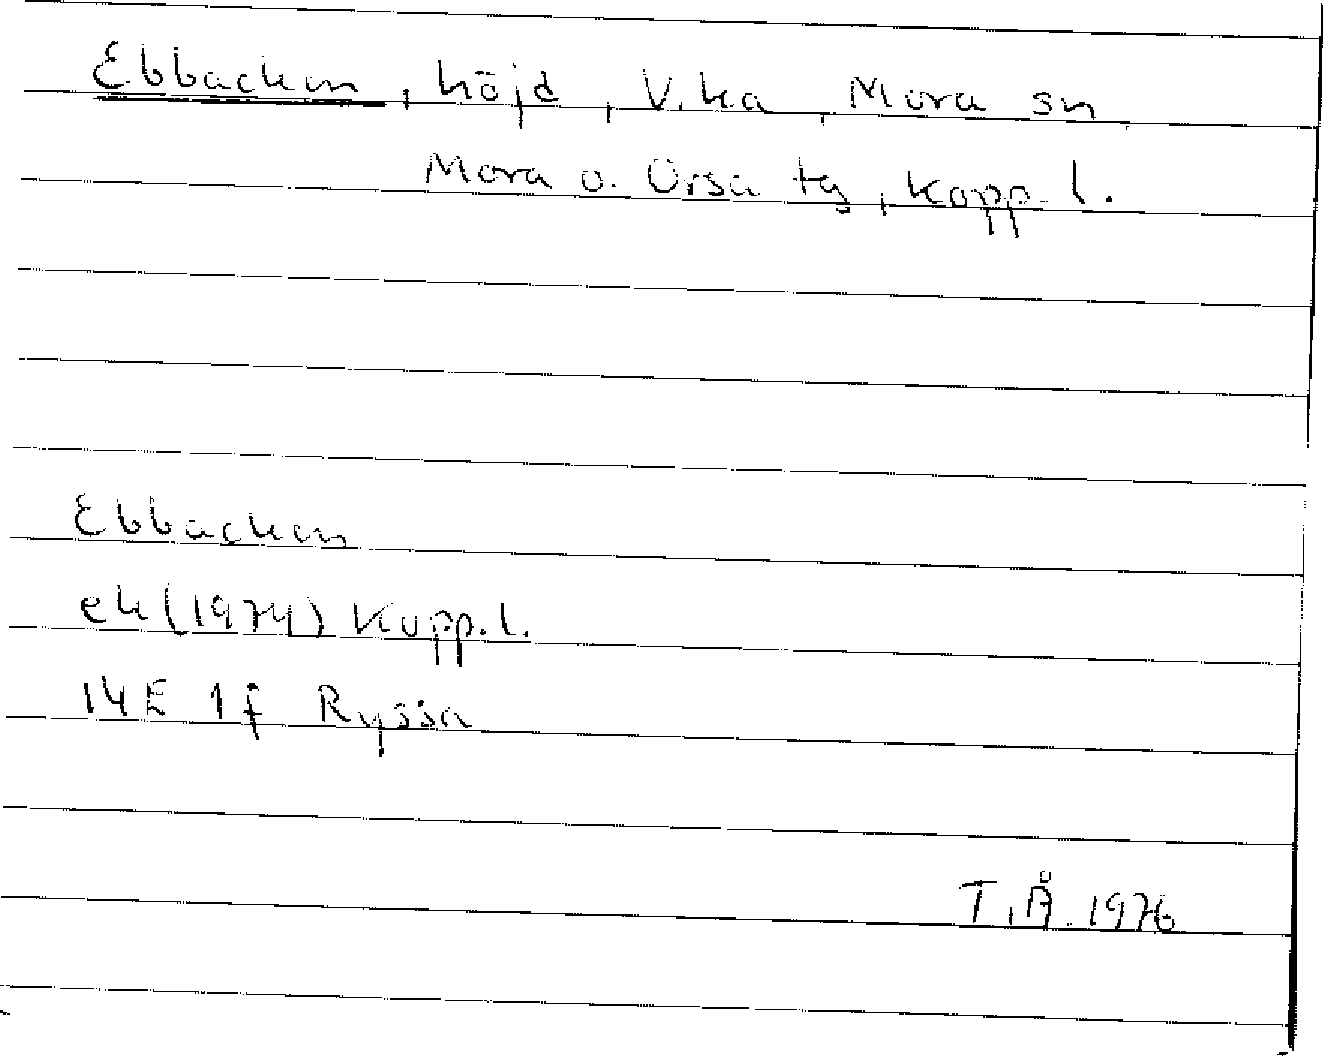 Ebbacken, höjd, V.ka, Mora sn,
Mora o. Orsa tg, Kopp. l.
Ebbacken
ek (1974) Kopp. l.
14E 1f Ryssa
T.Å. 1976